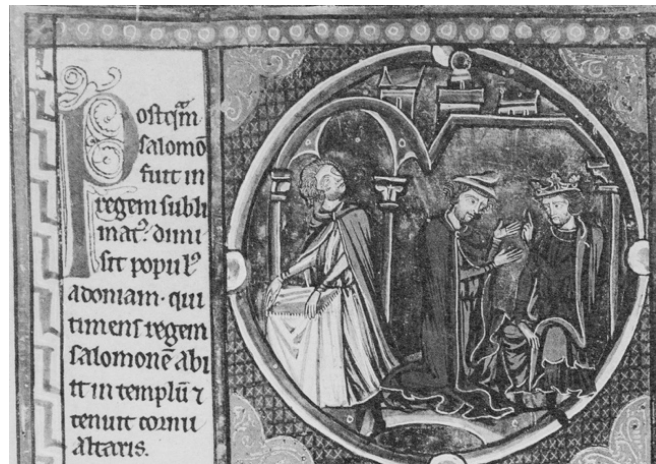 Postq̃m
salomõ
fuit in
regem subli
matꝰ. dimi
sit populꝰ
adoniam. qui
timens regem
salomonẽ abi
it in templũ ⁊
tenuit cornu
altaris.